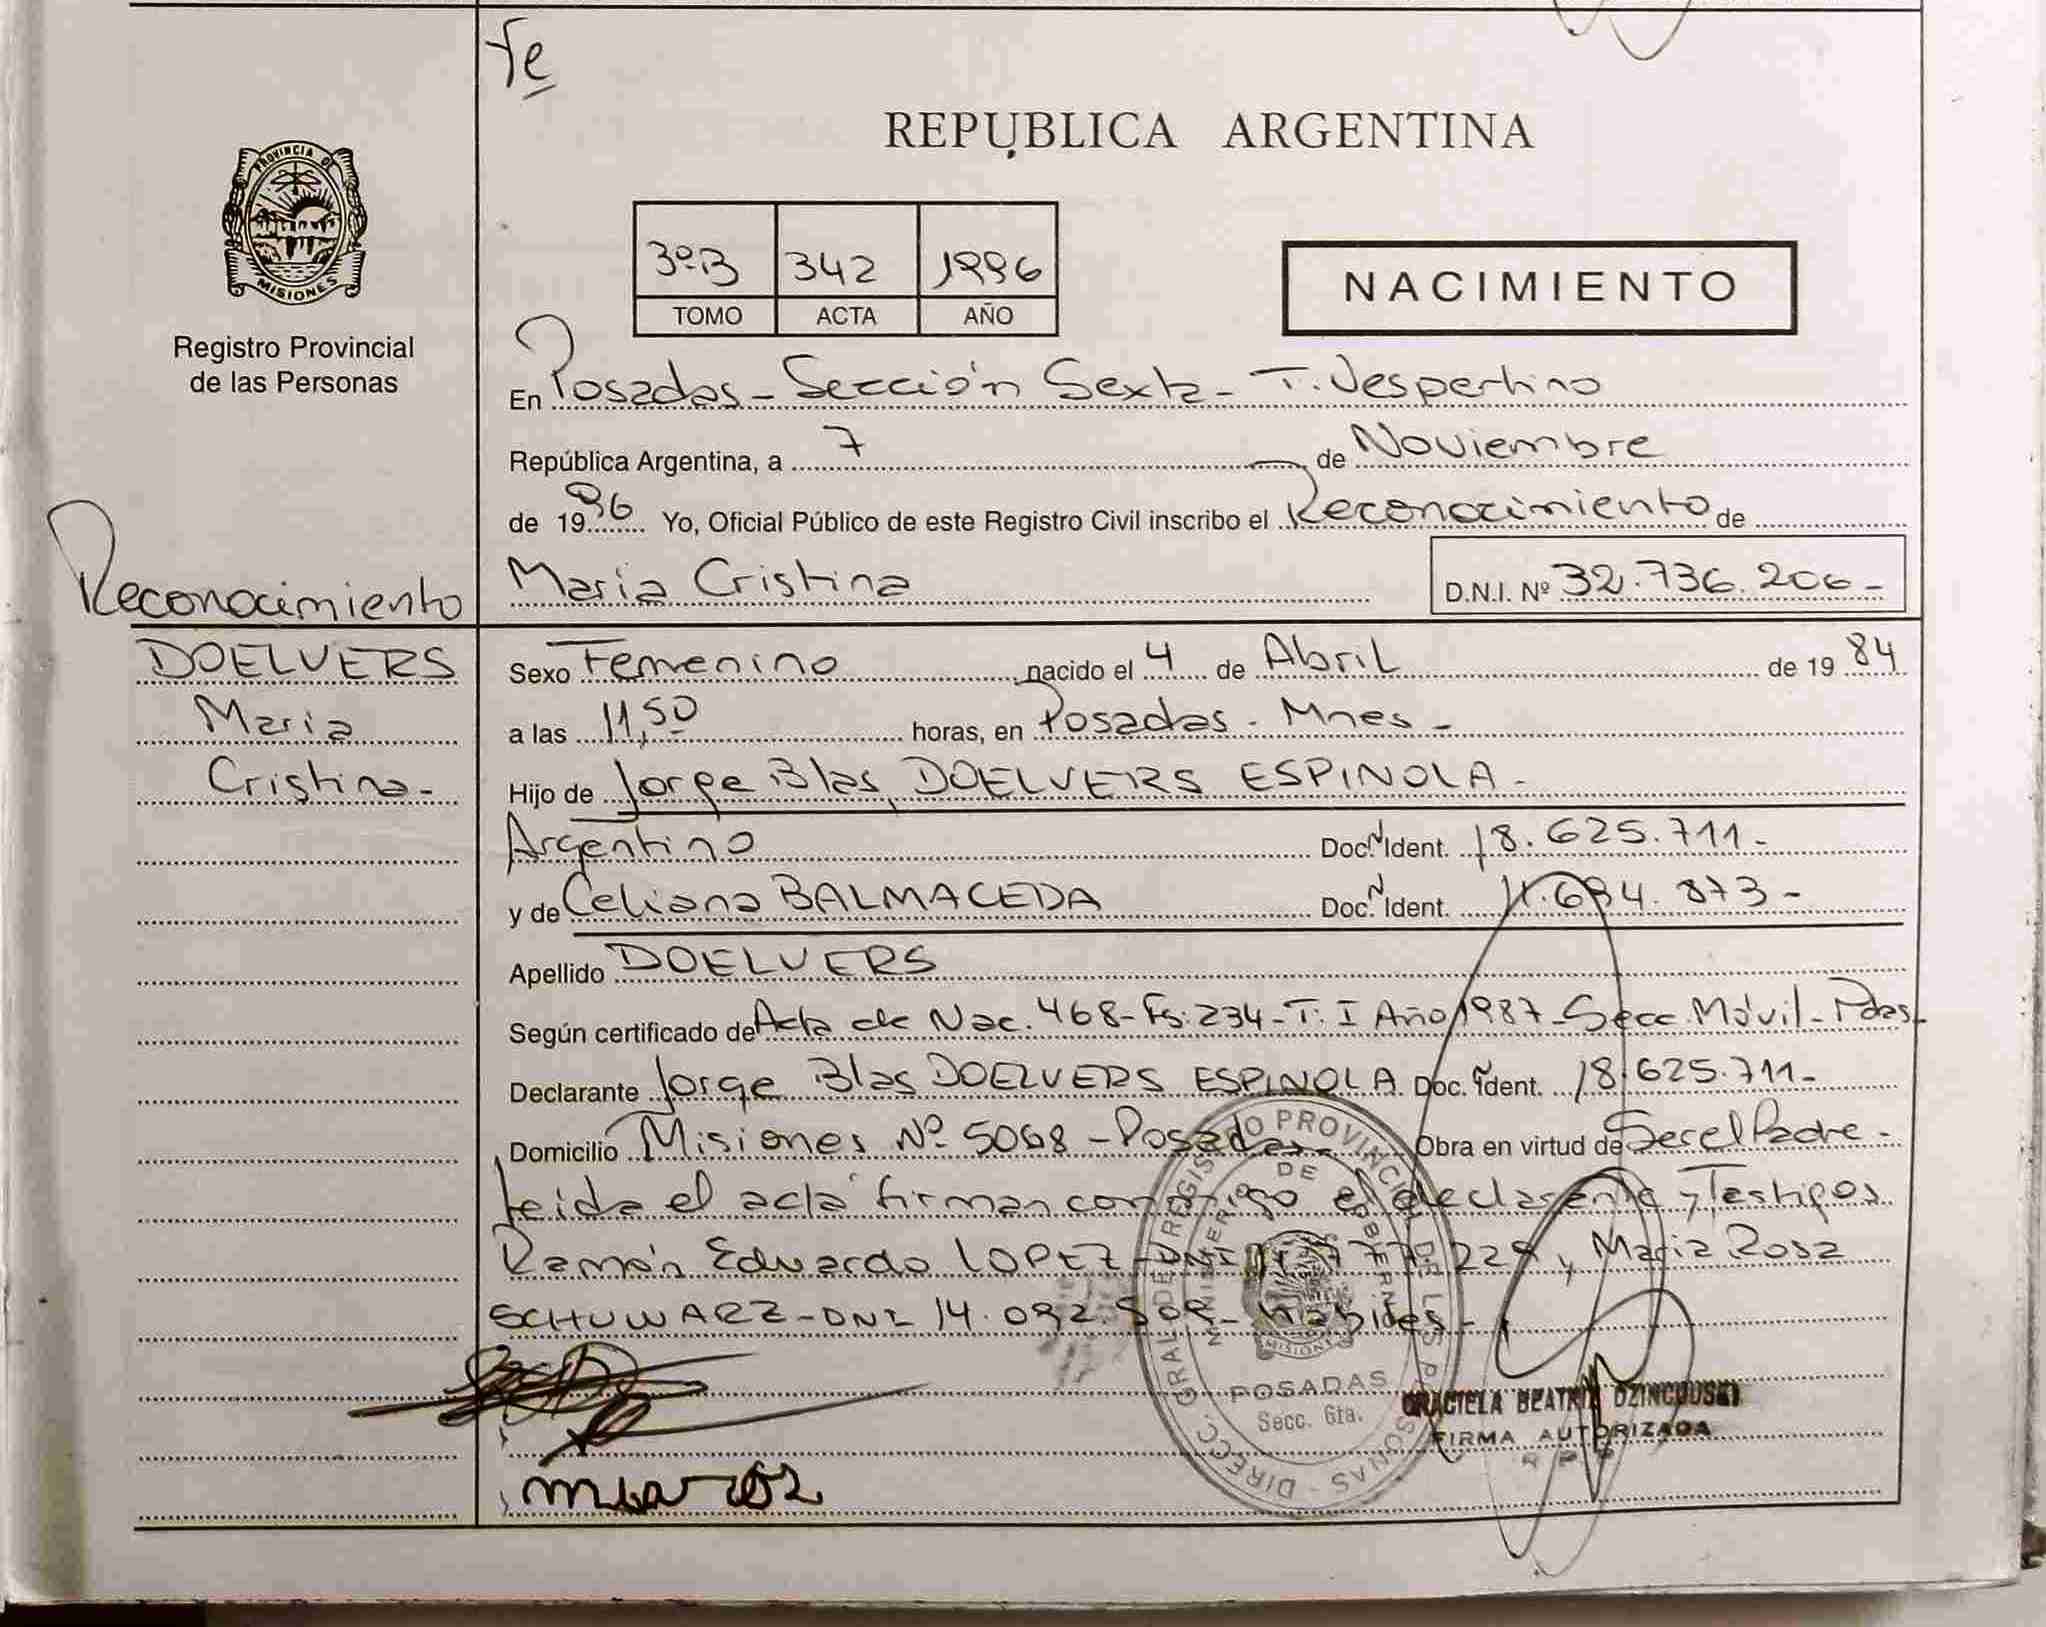 Fe
REPUBLICA ARGENTINA
PROVINCIA DE
MISIONES
Registro Provincial
de las Personas
3ºB 342 1996
TOMO ACTA AÑO
NACIMIENTO
En Posadas - Sección Sexta - T. Vespertino
República Argentina, a 7 de Noviembre
de 1996 Yo, Oficial Público de este Registro Civil inscribo el Reconocimiento de
Maria Cristina D.N.I. Nº 32.736.206-
Reconocimiento
DOELVERS
Maria
Cristina-
Sexo Femenino nacido el 4 de Abril de 1984
a las 11,50 horas, en Posadas - Mnes -
Hijo de Jorge Blas DOELVERS ESPINOLA -
Argentino Doc. Ident. 18.625.711-
y de Celiana BALMACEDA Doc. Ident. 11.694.873-
Apellido DOELVERS
Según certificado de Acta de Nac. 468-Fs: 234-T: I Año 1987-Secc. Móvil-Pdas-
Declarante Jorge Blas DOELVERS ESPINOLA Doc. Ident. 18.625.711-
Domicilio Misiones Nº 5068 - Posadas - Obra en virtud de Ser el Padre -
Leida el acta firman conmigo el declarante y Testigos
Ramón Eduardo LOPEZ - DNI 777.229 y Maria Rosa
SCHUWARZ - DNI 14.092.509 - Habides -
DIRECC. GRAL DEL REGISTRO PROVINCIAL DE LAS PERSONAS
MINISTERIO DE GOBIERNO
MISIONES
POSADAS
Secc. 6ta.
GRACIELA BEATRIZ
FIRMA AUTORIZADA